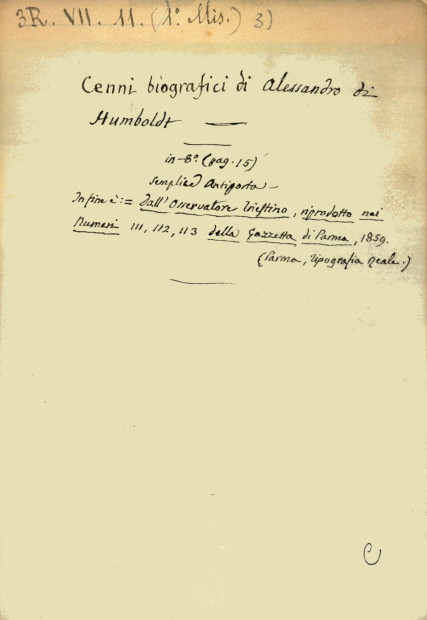 3R. VII. 11. (1º. Mis.) 3)
Cenni biografici di Alessandro di
Humboldt —
in-8º. (pag. 15)
semplice Antiporta –
In fine è: = Dall' Osservatore Triestino, riprodotto nei
Numeri 111, 112, 113 della Gazzetta di Parma, 1859.
(Parma, tipografia Reale.)
C